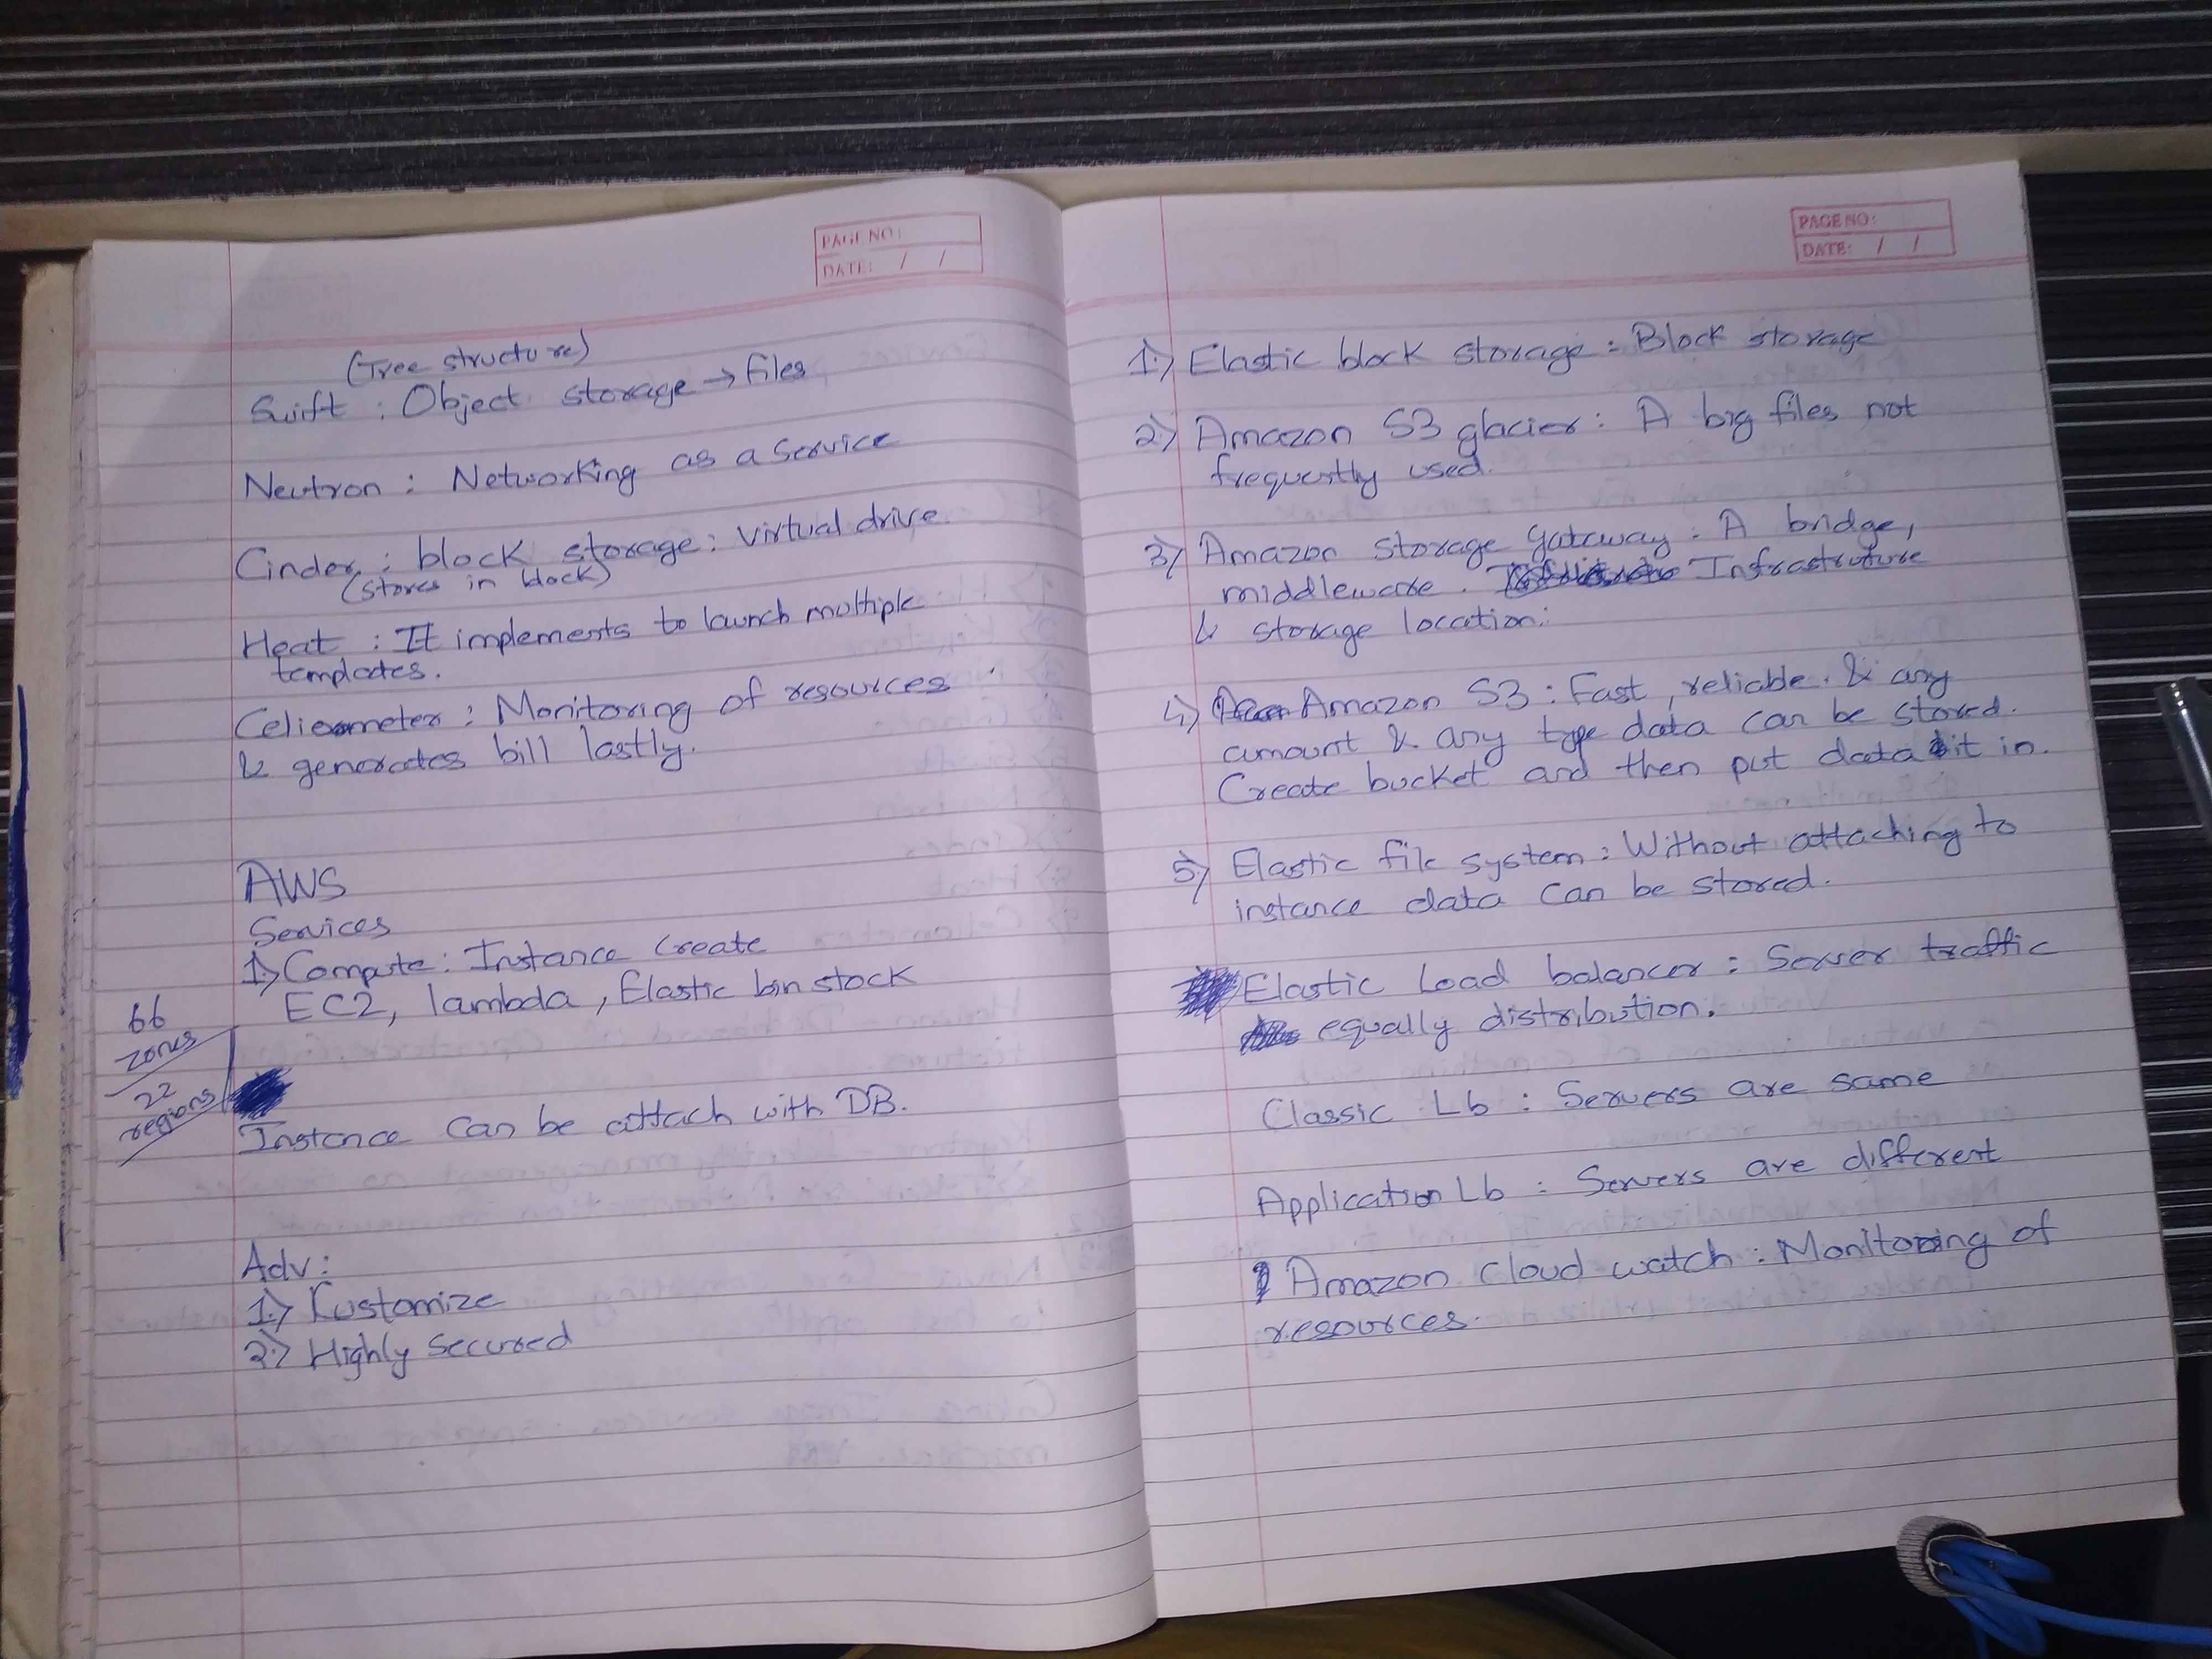 PAGE NO:
DATE: / /
(Tree structure)
Swift : Object storage → files
Neutron : Networking as a Service
Cinder : block storage : virtual drive.
(stores in block)
Heat : It implements to launch multiple
templates.
Celieometer : Monitoring of resources
& generates bill lastly.
AWS
Services
1) Compute : Instance create
EC2, lambda, Elastic bin stock
66
zones
22
regions
Instance can be attach with DB.
Adv :
1) Kustomize
2) Highly secured
PAGE NO:
DATE: / /
1) Elastic block storage : Block storage
2) Amazon S3 glacier : A big files not
frequently used.
3) Amazon storage gateway : A bridge,
middleware. Infrastruture
& storage location.
4) Amazon S3 : Fast, reliable. & any
amount & any type data can be stored.
Create bucket and then put data it in.
5) Elastic file system : Without attaching to
instance data can be stored.
Elastic Load balancer : Server traffic
equally distribution.
Classic Lb : Servers are same
Application Lb : Servers are different
Amazon cloud watch : Monitoring of
resources.